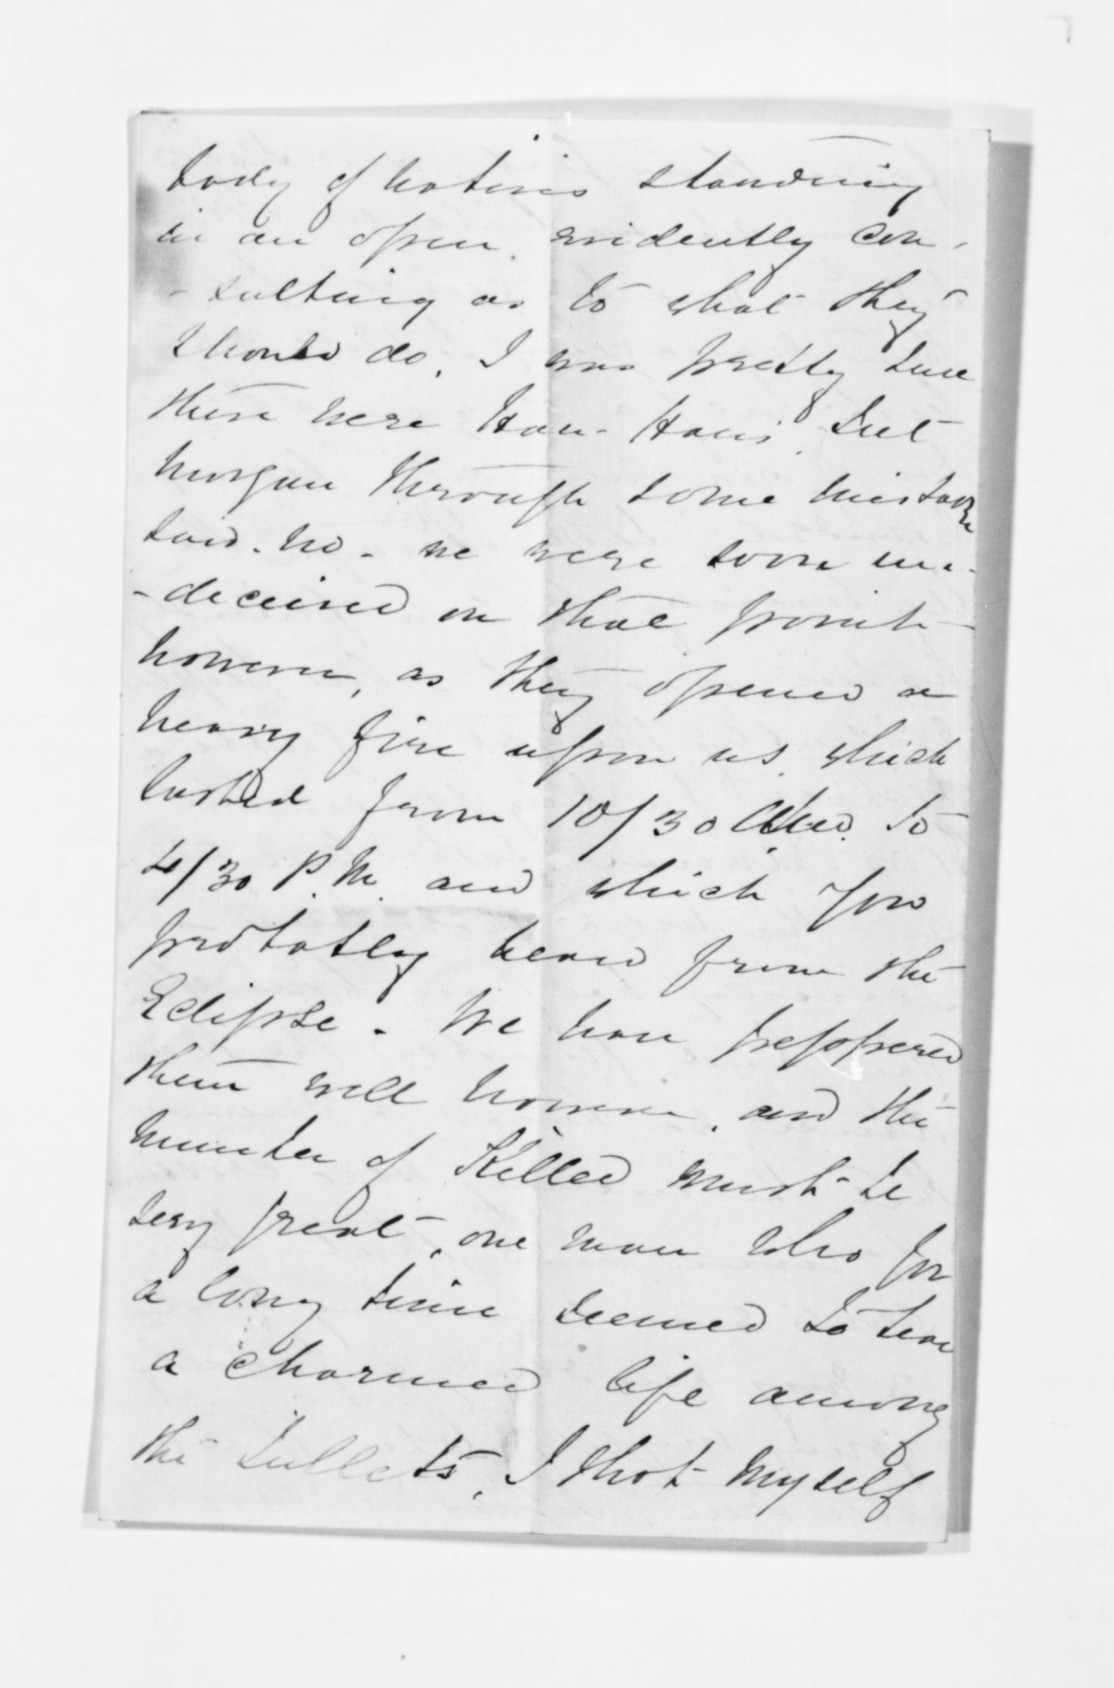 body of natives standing
in an open, evidently con-
-sulting as to what they
should do, I was pretty sure
these were Hau-Haus, but
Morgan through some mistake
said - no - we were soon un-
-deceived on that point
however, as they opened a
heavy fire upon us, which
lasted from 10/30 A.M. to
4/30 P.M. and which you
probably heard from the
Eclipse - We have peppered
them well however, and the
number of Killed must be
very great, one man who for
a long time seemed to bear
a charmed life among
the bullets, I shot myself